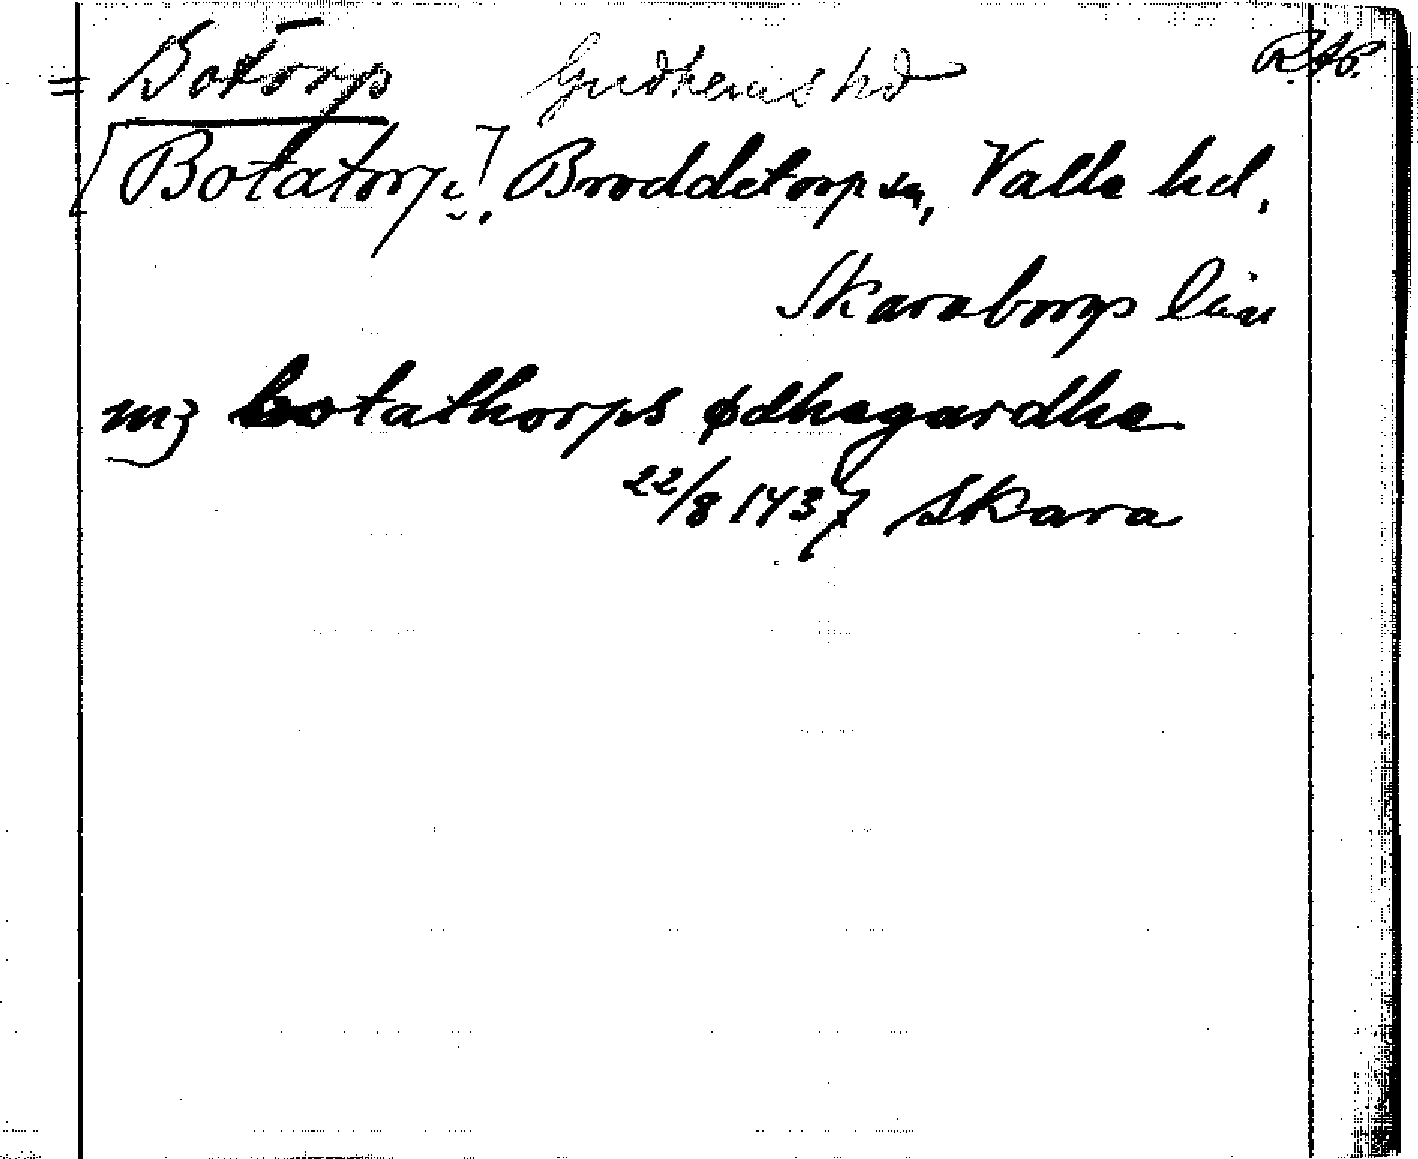 = Botorp Gudhems hd R.A.P.
[Botatorp], Broddetorp sn, Valle hd,
Skaraborgs län
mz botathorps ødhegardhe
22/8 1437 Skara